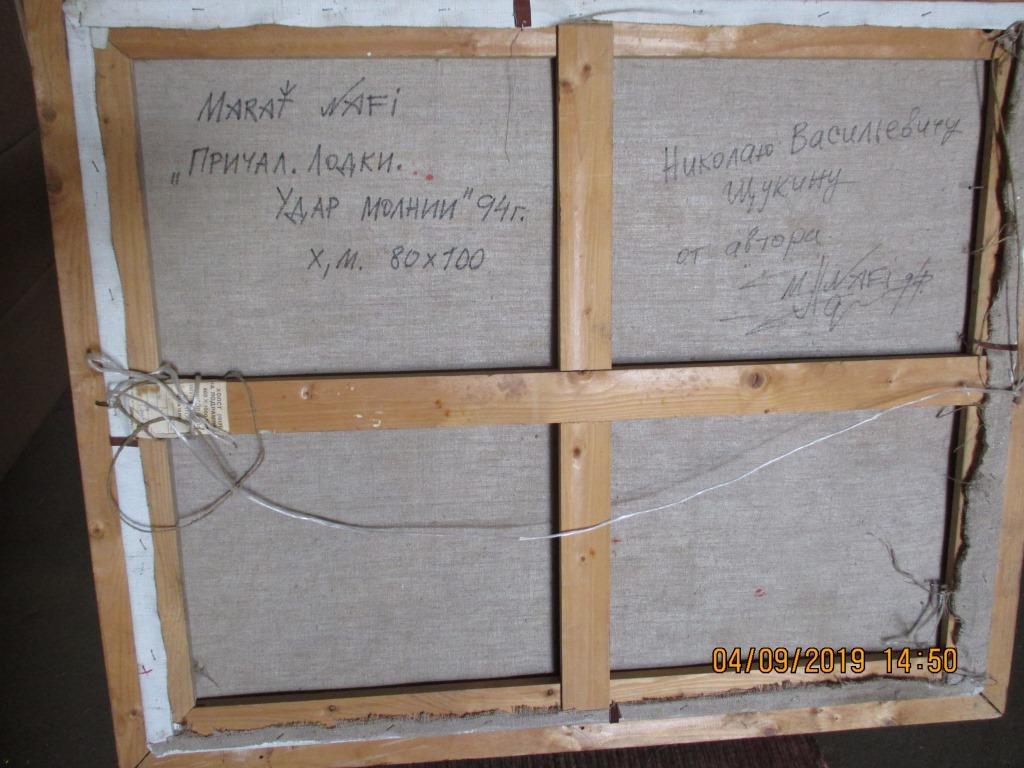 MARAT NAFI
„ПРИЧАЛ. ЛОДКИ.
УДАР МОЛНИИ" 94г.
Х,М. 80х100
Николаю Васильевичу
Щукину
от автора
NAFI
ХОЛСТ
НА ПОДРАМНИКЕ
04/09/2019 14:50